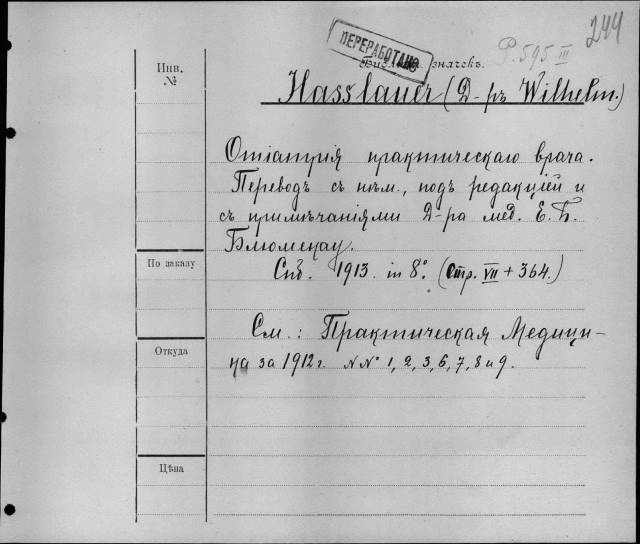 244
Р.595 III
ПЕРЕРАБОТАНО
значекъ.
Инв.
№
Hasslauer (Д-ръ Wilhelm.)
Отіатрія практическаго врача.
Переводъ съ нѣм., подъ редакціей и
съ примѣчаніями Д-ра мед. Е. Б.
Блюменау.
По заказу
Спб. 1913. in 8º. (Стр. VII + 364.)
См.: Практическая Медици-
Откуда
на за 1912 г. NNº 1, 2, 3, 6, 7, 8 и 9.
Цѣна